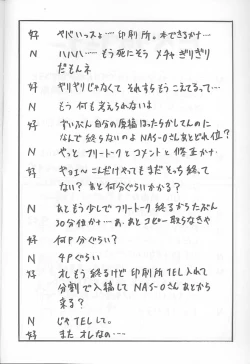 好 ヤバいっスよ…印刷所。本できるかナ…
N ハハハ……もう死にそう メチャ ぎりぎり
だもんネ
好 ヤリギリじゃなくて それすらもう こえてるって…
N もう 何も考えられないよ
好 ずいぶん自分の原稿ほったらかしてんのに
なんで 終らないのよ NAS-Oさんあとどれ位?
N やっと フリートークとコメントと修正カナ
好 ギョエ〜こんだけやっても まだ 終って
ない? あと何分ぐらいかかる?
N あともう少しで フリートーク 終るからたぶん
30分位かナ…あ、あとコピー取らなきゃ
好 何P分ぐらい?
N 4Pぐらい
好 オレもう終るけど 印刷所TEL入れて
分割で入稿して NAS-Oさんあとから
来る?
N じゃ TELして。
好 またオレなの…